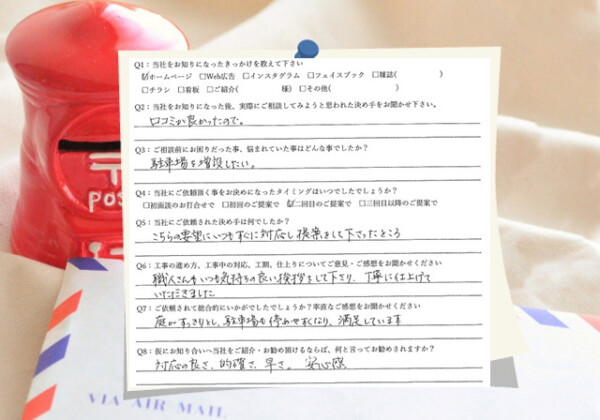 Q1：当社をお知りになったきっかけを教えて下さい
☑ホームページ □Web広告 □インスタグラム □フェイスブック □雑誌( )
□チラシ □看板 □ご紹介( 様) □その他( )
Q2：当社をお知りになった後、実際にご相談してみようと思われた決め手をお聞かせ下さい。
口コミが良かったので。
Q3：ご相談前にお困りだった事、悩まれていた事はどんな事でしたか？
駐車場を増設したい。
Q4：当社にご依頼頂く事をお決めになったタイミングはいつでしたでしょうか？
□初面談のお打合せで □初回のご提案で ☑二回目のご提案で □三回目以降のご提案で
Q5：当社に依頼された決め手は何でしたか？
こちらの要望にいつもすぐに対応し提案をして下さったところ
Q6：工事の進め方、工事中の対応、工期、仕上りについてご意見・ご感想をお聞かせください
職人さんもいつも気持ちの良い挨拶をして下さり、丁寧に仕上げて
いただきました
Q7：ご依頼されて総合的にいかがでしたでしょうか？率直なご感想をお聞かせください
庭がすっきりとし、駐車場も停めやすくなり、満足しています
Q8：仮にお知り合いへ当社をご紹介・お勧め頂けるならば、何と言ってお勧めされますか？
対応の良さ、的確さ、早さ。 安心感
POS
VIA AIR MAIL